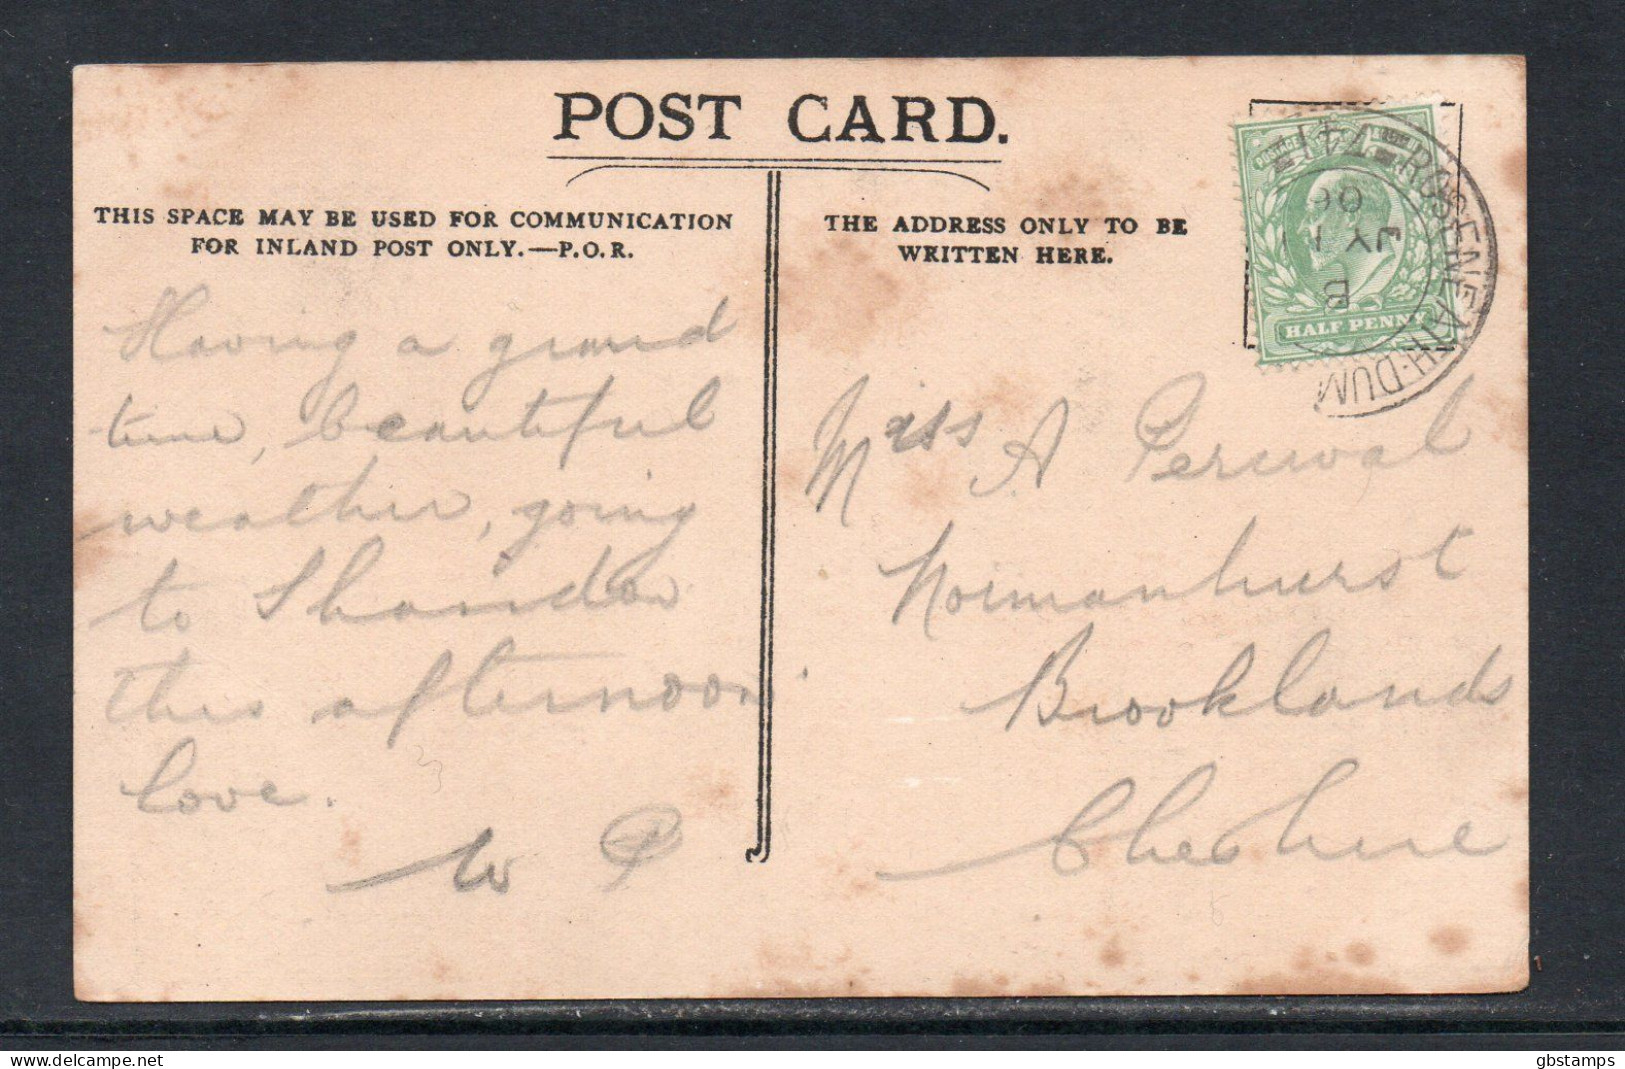 POST CARD.
THIS SPACE MAY BE USED FOR COMMUNICATION
FOR INLAND POST ONLY.—P.O.R.
THE ADDRESS ONLY TO BE
WRITTEN HERE.
Having a grand
time, beautiful
weather, going
to Shandon
this afternoon.
love.
W P
Miss A Percival
Normanhurst
Brooklands
Cheshire
POSTAGE
HALF PENNY
ROSENEATH·DUM
B
JY 11
06
delcampe.net
gbstamps